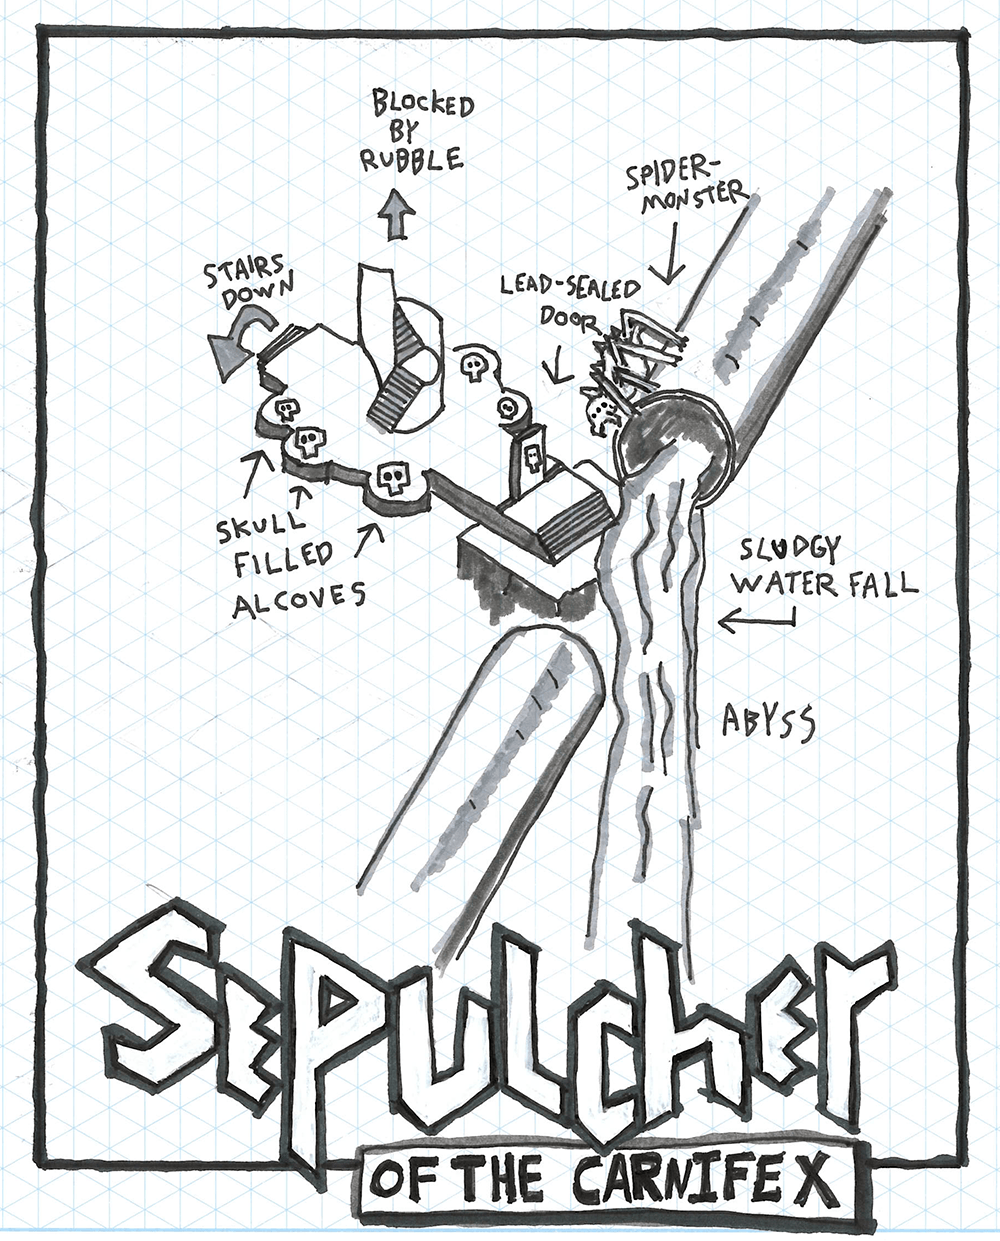 BLOCKED
BY
RUBBLE
SPIDER-
MONSTER
STAIRS
DOWN
LEAD-SEALED
DOOR
SKULL
FILLED
ALCOVES
SLUDGY
WATER FALL
ABYSS
SEPULCHER
OF THE CARNIFEX